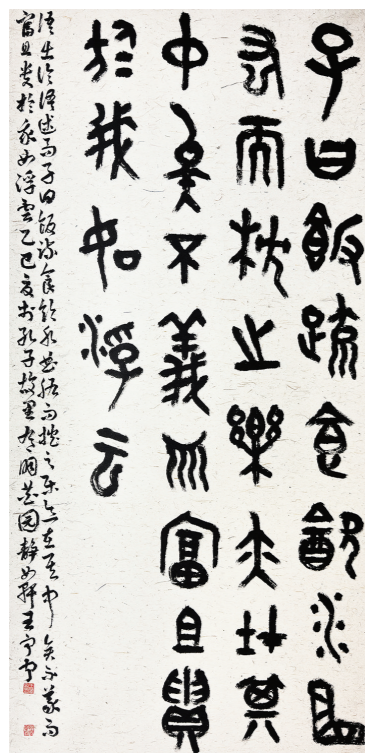 子曰飯疏食飲水曲
肱而枕之樂亦在其
中矣不義而富且貴
於我如浮云
語出论语述而子曰飯疏食飲水曲肱而枕之樂亦在其中矣不義而
富且贵於我如浮雲乙巳夏於孔子故里明园静如轩王